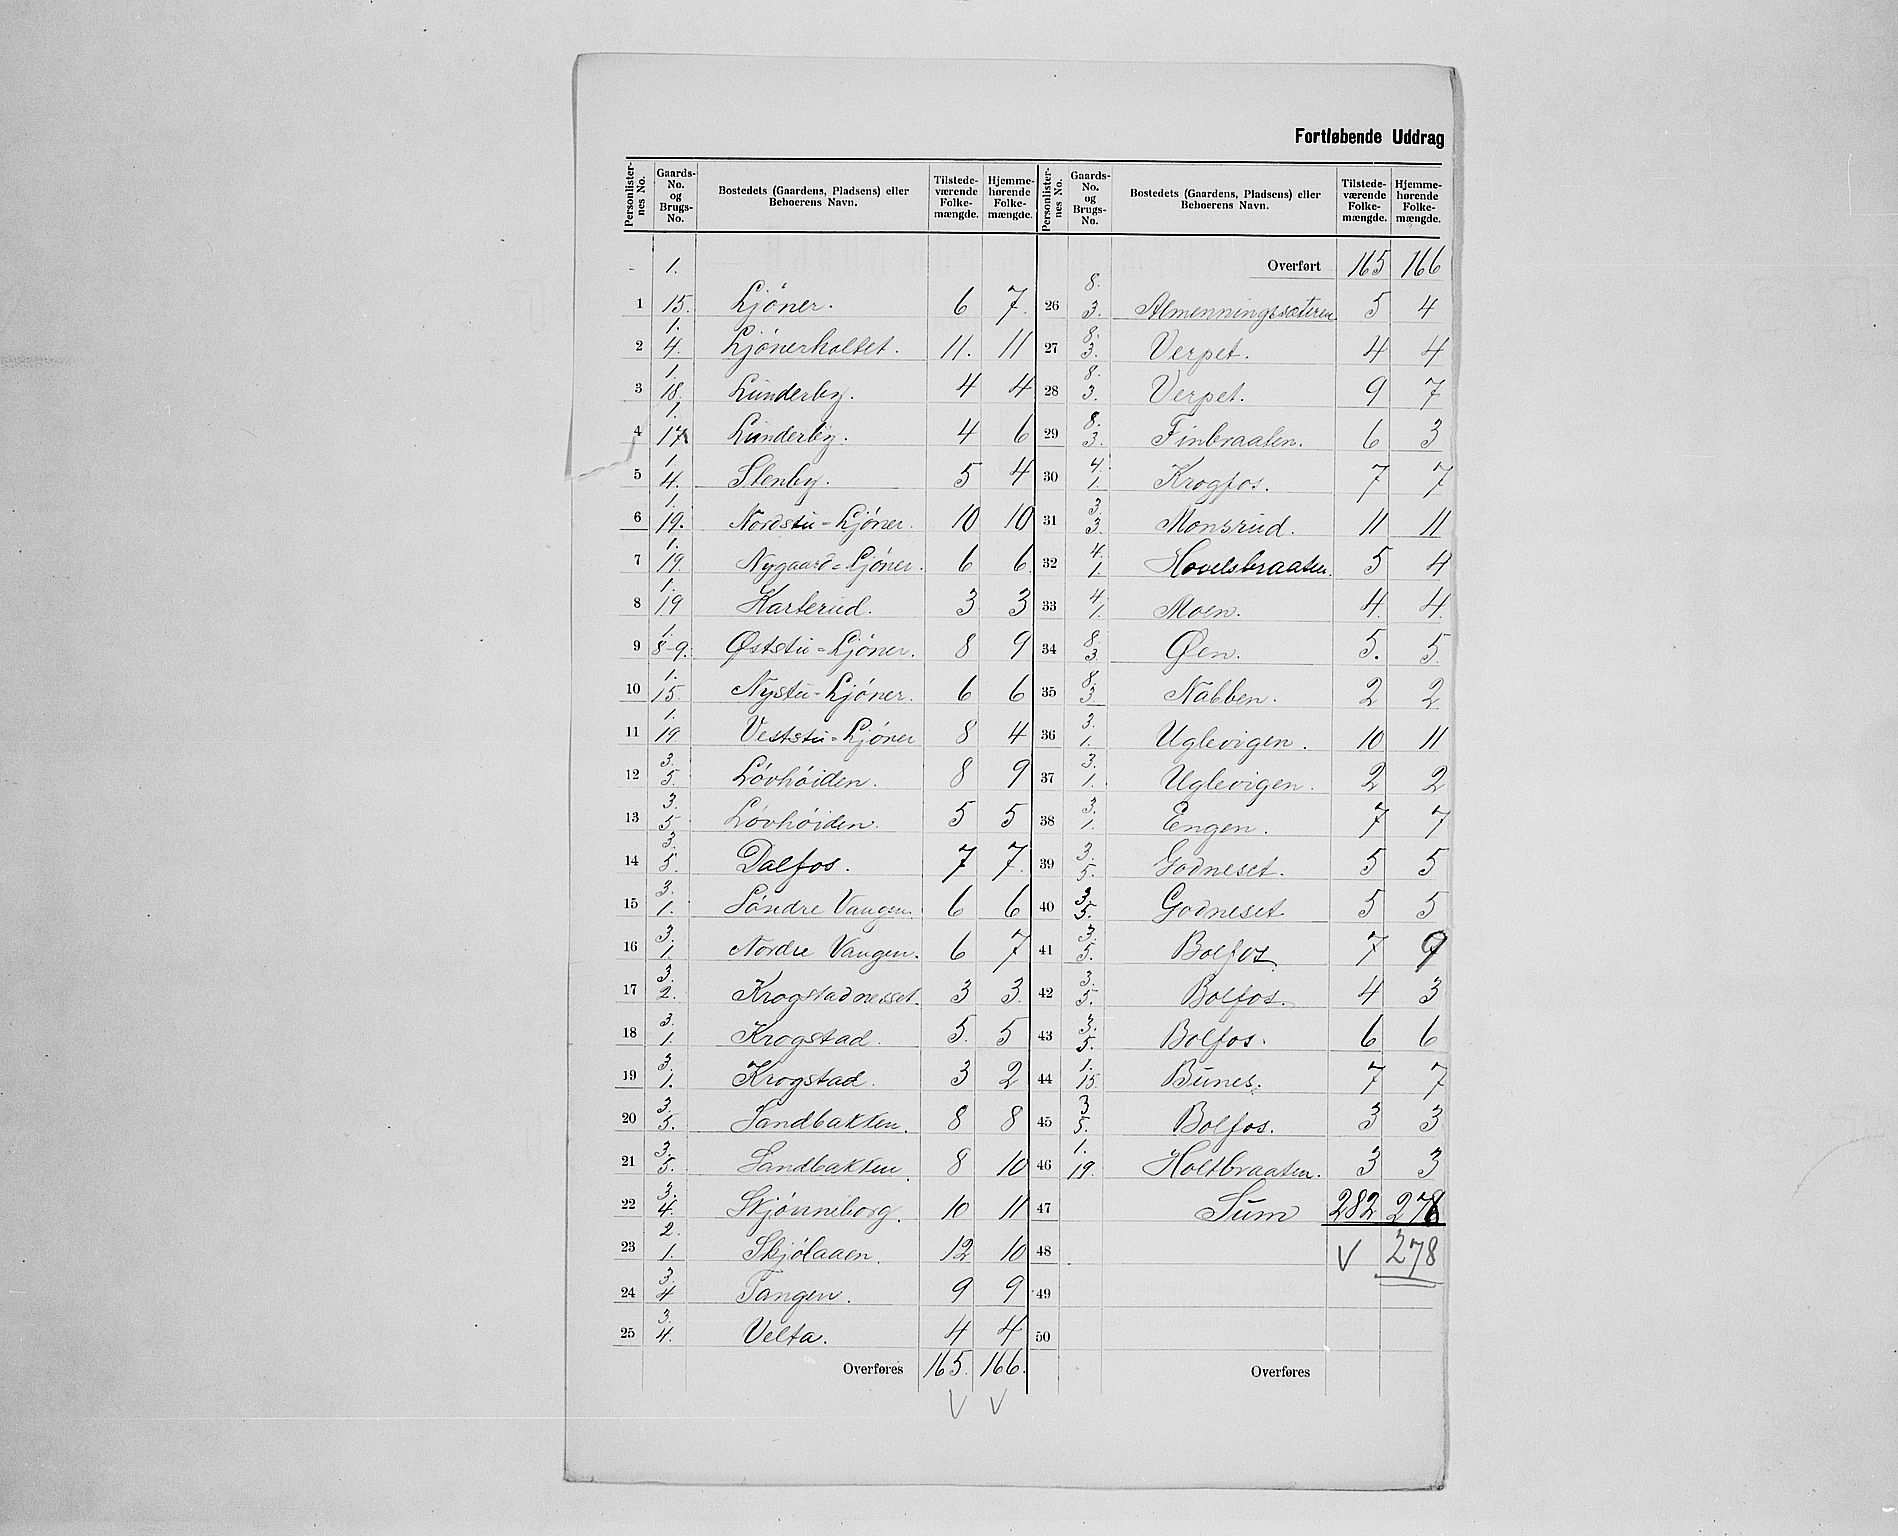 Fortløbende Uddrag
Personlisternes No. | Gaards-No. og Brugs-No. | Bostedets (Gaardens, Pladsens) eller Beboerens Navn. | Tilstedeværende Folkemængde. | Hjemmehørende Folkemængde.
1 | 1. 15. | Ljöner. | 6 | 7.
2 | 1. 4. | Ljönerholtet. | 11. | 11
3 | 1. 18. | Lunderby. | 4 | 4
4 | 1. 17 | Lunderby. | 4 | 6
5 | 1. 4. | Stenby. | 5 | 4
6 | 1. 19. | Nordstu-Ljöner. | 10 | 10
7 | 1. 19 | Nygaard-Ljöner. | 6 | 6
8 | 1. 19 | Karterud. | 3 | 3
9 | 1. 8-9. | Øststu-Ljöner. | 8 | 9
10 | 1. 15 | Nystu-Ljöner. | 6 | 6
11 | 1. 19 | Veststu-Ljöner | 8 | 4
12 | 3. 5. | Lövhöiden. | 8 | 9
13 | 3. 5 | Lövhöiden. | 5 | 5
14 | 3. 5. | Dalfos. | 7 | 7.
15 | 3. 1. | Söndre Vangen. | 6 | 6
16 | 3. 1 | Nordre Vangen. | 6 | 7
17 | 3. 2. | Krogstadnesset. | 3 | 3.
18 | 3. 1. | Krogstad. | 5. | 5
19 | 3. 1. | Krogstad. | 3 | 2
20 | 3. 5. | Sandbakken. | 8 | 8
21 | 3. 5. | Sandbakken. | 8 | 10
22 | 3. 4. | Skjönneborg. | 10 | 11
23 | 2. 1. | Skjölaaen. | 12 | 10
24 | 3. 4 | Tangen. | 9 | 9
25 | 3. 4. | Velta. | 4 | 4
Overføres | 165. | 166.
V V
Personlisternes No. | Gaards-No. og Brugs-No. | Bostedets (Gaardens, Pladsens) eller Beboerens Navn. | Tilstedeværende Folkemængde. | Hjemmehørende Folkemængde.
Overført | 165 | 166
26 | 8. 3. | Almenningssæteren | 5 | 4
27 | 8. 3. | Verpet. | 4 | 4
28 | 8. 3. | Verpet. | 9 | 7
29 | 8. 3. | Finbraaten. | 6 | 3
30 | 4. 1. | Krogfos. | 7 | 7
31 | 3. 3. | Monsrud. | 11 | 11
32 | 4. 1. | Hovelsbraaten. | 5 | 4
33 | 4. 1. | Moen. | 4. | 4.
34 | 8. 3. | Øen. | 5. | 5.
35 | 8. 3. | Nabben. | 2 | 2
36 | 3. 1. | Uglevigen. | 10 | 11
37 | 3. 1. | Uglevigen. | 2 | 2
38 | 3. 1. | Engen. | 7 | 7
39 | 3. 5. | Godneset. | 5 | 5
40 | 3. 5. | Godneset | 5 | 5
41 | 3. 5. | Bolfos | 7 | 9
42 | 3. 5. | Bolfos. | 4 | 3
43 | 3. 5. | Bolfos. | 6 | 6
44 | 1. 15. | Bunes. | 7 | 7
45 | 3 5. | Bolfos. | 3 | 3
46 | 1. 19. | Holtbraaten. | 3 | 3
47 | Sum | 282 | 278
48 | V | 278
49
50
Overføres